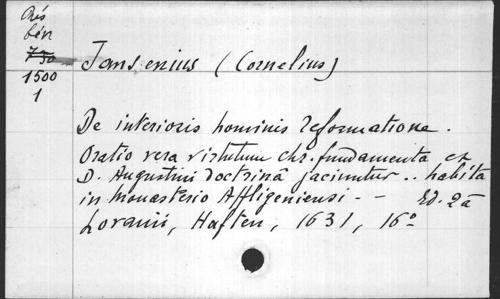 Rés
bén
750
1500
1
Jansenius (Cornelius)
De interioris hominis reformatione.
Oratio vera virtutum chr. fundamenta ex
D. Augustini doctrinâ jaciuntur .. habita
in monasterio Affligeniensi - - Ed. 2a
Lovanii, Haften, 1631, 16°